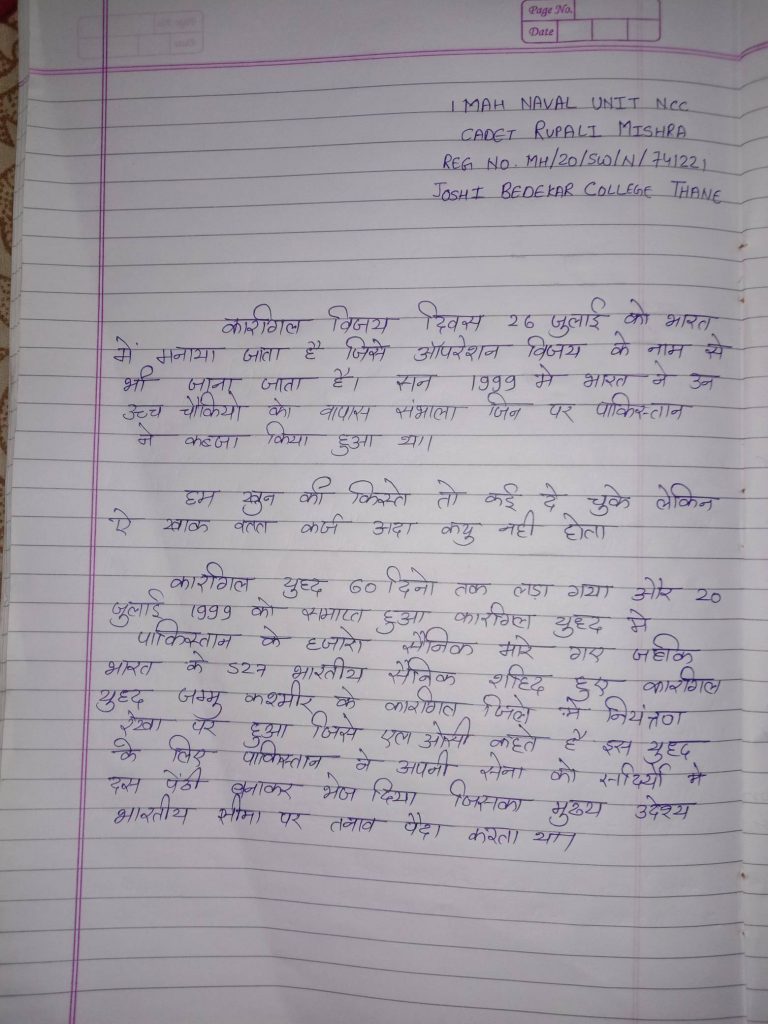 Page No.
Date
1 MAH NAVAL UNIT NCC
CADET RUPALI MISHRA
REG NO. MH/20/SW/N/741221
JOSHI BEDEKAR COLLEGE THANE
कारगिल विजय दिवस 26 जुलाई को भारत
में मनाया जाता है जिसे ऑपरेशन विजय के नाम से
भी जाना जाता है। सन 1999 मे भारत ने उन
उच्च चौकियो को वापास संभाला जिन पर पाकिस्तान
ने कब्जा किया हुआ था।
हम खुन की किस्ते तो कई दे चुके लेकिन
ऐ खाक वतत कर्ज अदा कयु नही होता
कारगिल युध्द 60 दिनो तक लड़ा गया और 20
जुलाई 1999 को समाप्त हुआ कारगिल युध्द मे
पाकिस्तान के हजारो सैनिक मारे गए जबकि
भारत के 527 भारतीय सैनिक शहिद हुए कारगिल
युध्द जम्मु कश्मीर के कारगिल जिले मे नियंत्रण
रेखा पर हुआ जिसे एल ओसी कहते है इस युध्द
के लिए पाकिस्तान ने अपनी सेना को सर्दियों मे
बनाकर भेज दिया जिसका मुख्य उदेश्य
भारतीय सीमा पर तनाव पैदा करता था।